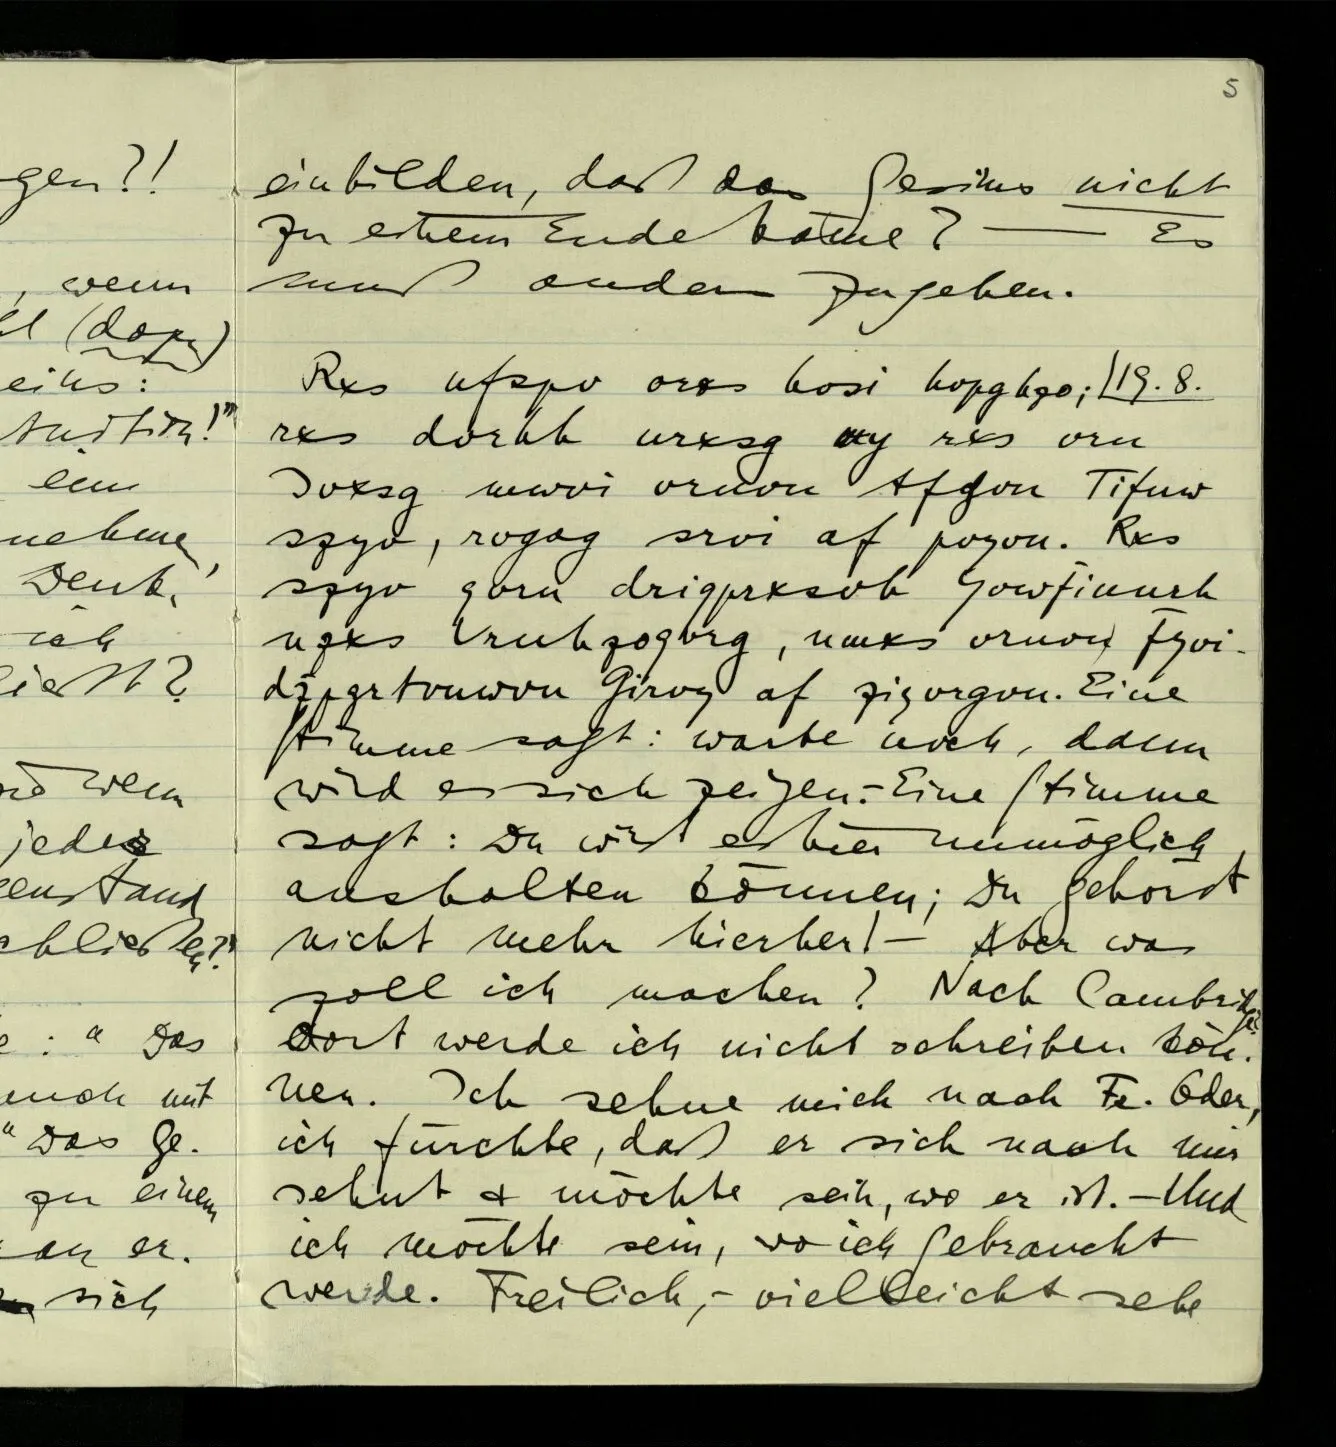 gen?!
, wenn
(dazu)
eins:
tuition!"
ein
nehme,
Denk,
ich
ließt?
und wenn
jedes
genstand
chließen?"
e: "Das
auch mit
" Das Ge-
zu einem
an er.
sich
5
einbilden, daß das Gesims nicht
zu einem Ende käme? — Es
muß anders zugehen.
Rxs ufspv orxs hvsi hvpghzo; |19.8.
rxs dvrhh nrxsg my rxs vrn
Ivxsg mwvi vrnvn tfgvn Tifnw
szyv, rvgag srvi af pvyvn. Rxs
szyv qvrn driqprxsvh Yvwfiunrh
nzxs Vrnhzoqvrg, nmxs vrnvn Fyvi-
dzpgrtvnwvn Girvy af ziyvrgvn. Eine
Stimme sagt: warte noch, dann
wird es sich zeigen. – Eine Stimme
sagt: Du wirst es hier unmöglich
aushalten können; Du gehörst
nicht mehr hierher! – Aber was
soll ich machen? Nach Cambridge?
Dort werde ich nicht schreiben kön-
nen. Ich sehne mich nach Fr. Oder,
ich fürchte, daß er sich nach mir
sehnt & möchte sein, wo er ist. – Und
ich möchte sein, wo ich gebraucht
werde. Freilich, – vielleicht sehe